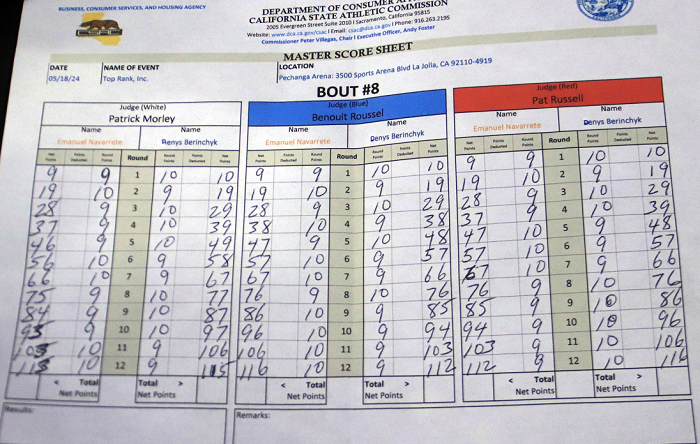 BUSINESS, CONSUMER SERVICES, AND HOUSING AGENCY
CSAC
DEPARTMENT OF CONSUMER
CALIFORNIA STATE ATHLETIC COMMISSION
2005 Evergreen Street Suite 2010 | Sacramento, California 95815
Website: www.dca.ca.gov/csac | Email: csac@dca.ca.gov | Phone: 916.263.2195
Commissioner Peter Villegas, Chair | Executive Officer, Andy Foster
MASTER SCORE SHEET
DATE NAME OF EVENT LOCATION
05/18/24 Top Rank, Inc. Pechanga Arena: 3500 Sports Arena Blvd La Jolla, CA 92110-4919
BOUT #8
Judge (White) Judge (Blue) Judge (Red)
Patrick Morley Benouit Roussel Pat Russell
Name Name Name Name Name Name
Emanuel Navarrete Denys Berinchyk Emanuel Navarrete Denys Berinchyk Emanuel Navarrete Denys Berinchyk
Net Points Points Deducted Round Points Round Round Points Points Deducted Net Points Net Points Points Deducted Round Points Round Round Points Points Deducted Net Points Net Points Points Deducted Round Points Round Round Points Points Deducted Net Points
9 9 1 10 10 9 9 1 10 10 9 9 1 10 10
19 10 2 9 19 19 10 2 9 19 19 10 2 9 19
28 9 3 10 29 28 9 3 10 29 28 9 3 10 29
37 9 4 10 39 38 10 4 9 38 37 9 4 10 39
46 9 5 10 49 47 9 5 10 48 47 10 5 9 48
56 10 6 9 58 57 10 6 9 57 57 10 6 9 57
66 10 7 9 67 67 10 7 9 66 67 10 7 9 66
75 9 8 10 77 76 9 8 10 76 76 9 8 10 76
84 9 9 10 87 86 10 9 9 85 85 9 9 10 86
93 9 10 10 97 96 10 10 9 94 94 9 10 10 96
103 10 11 9 106 106 10 11 9 103 103 9 11 10 106
113 10 12 9 115 116 10 12 9 112 112 9 12 10 116
< Total > < Total > < Total >
Net Points Net Points Net Points Net Points Net Points Net Points
Results: Remarks: